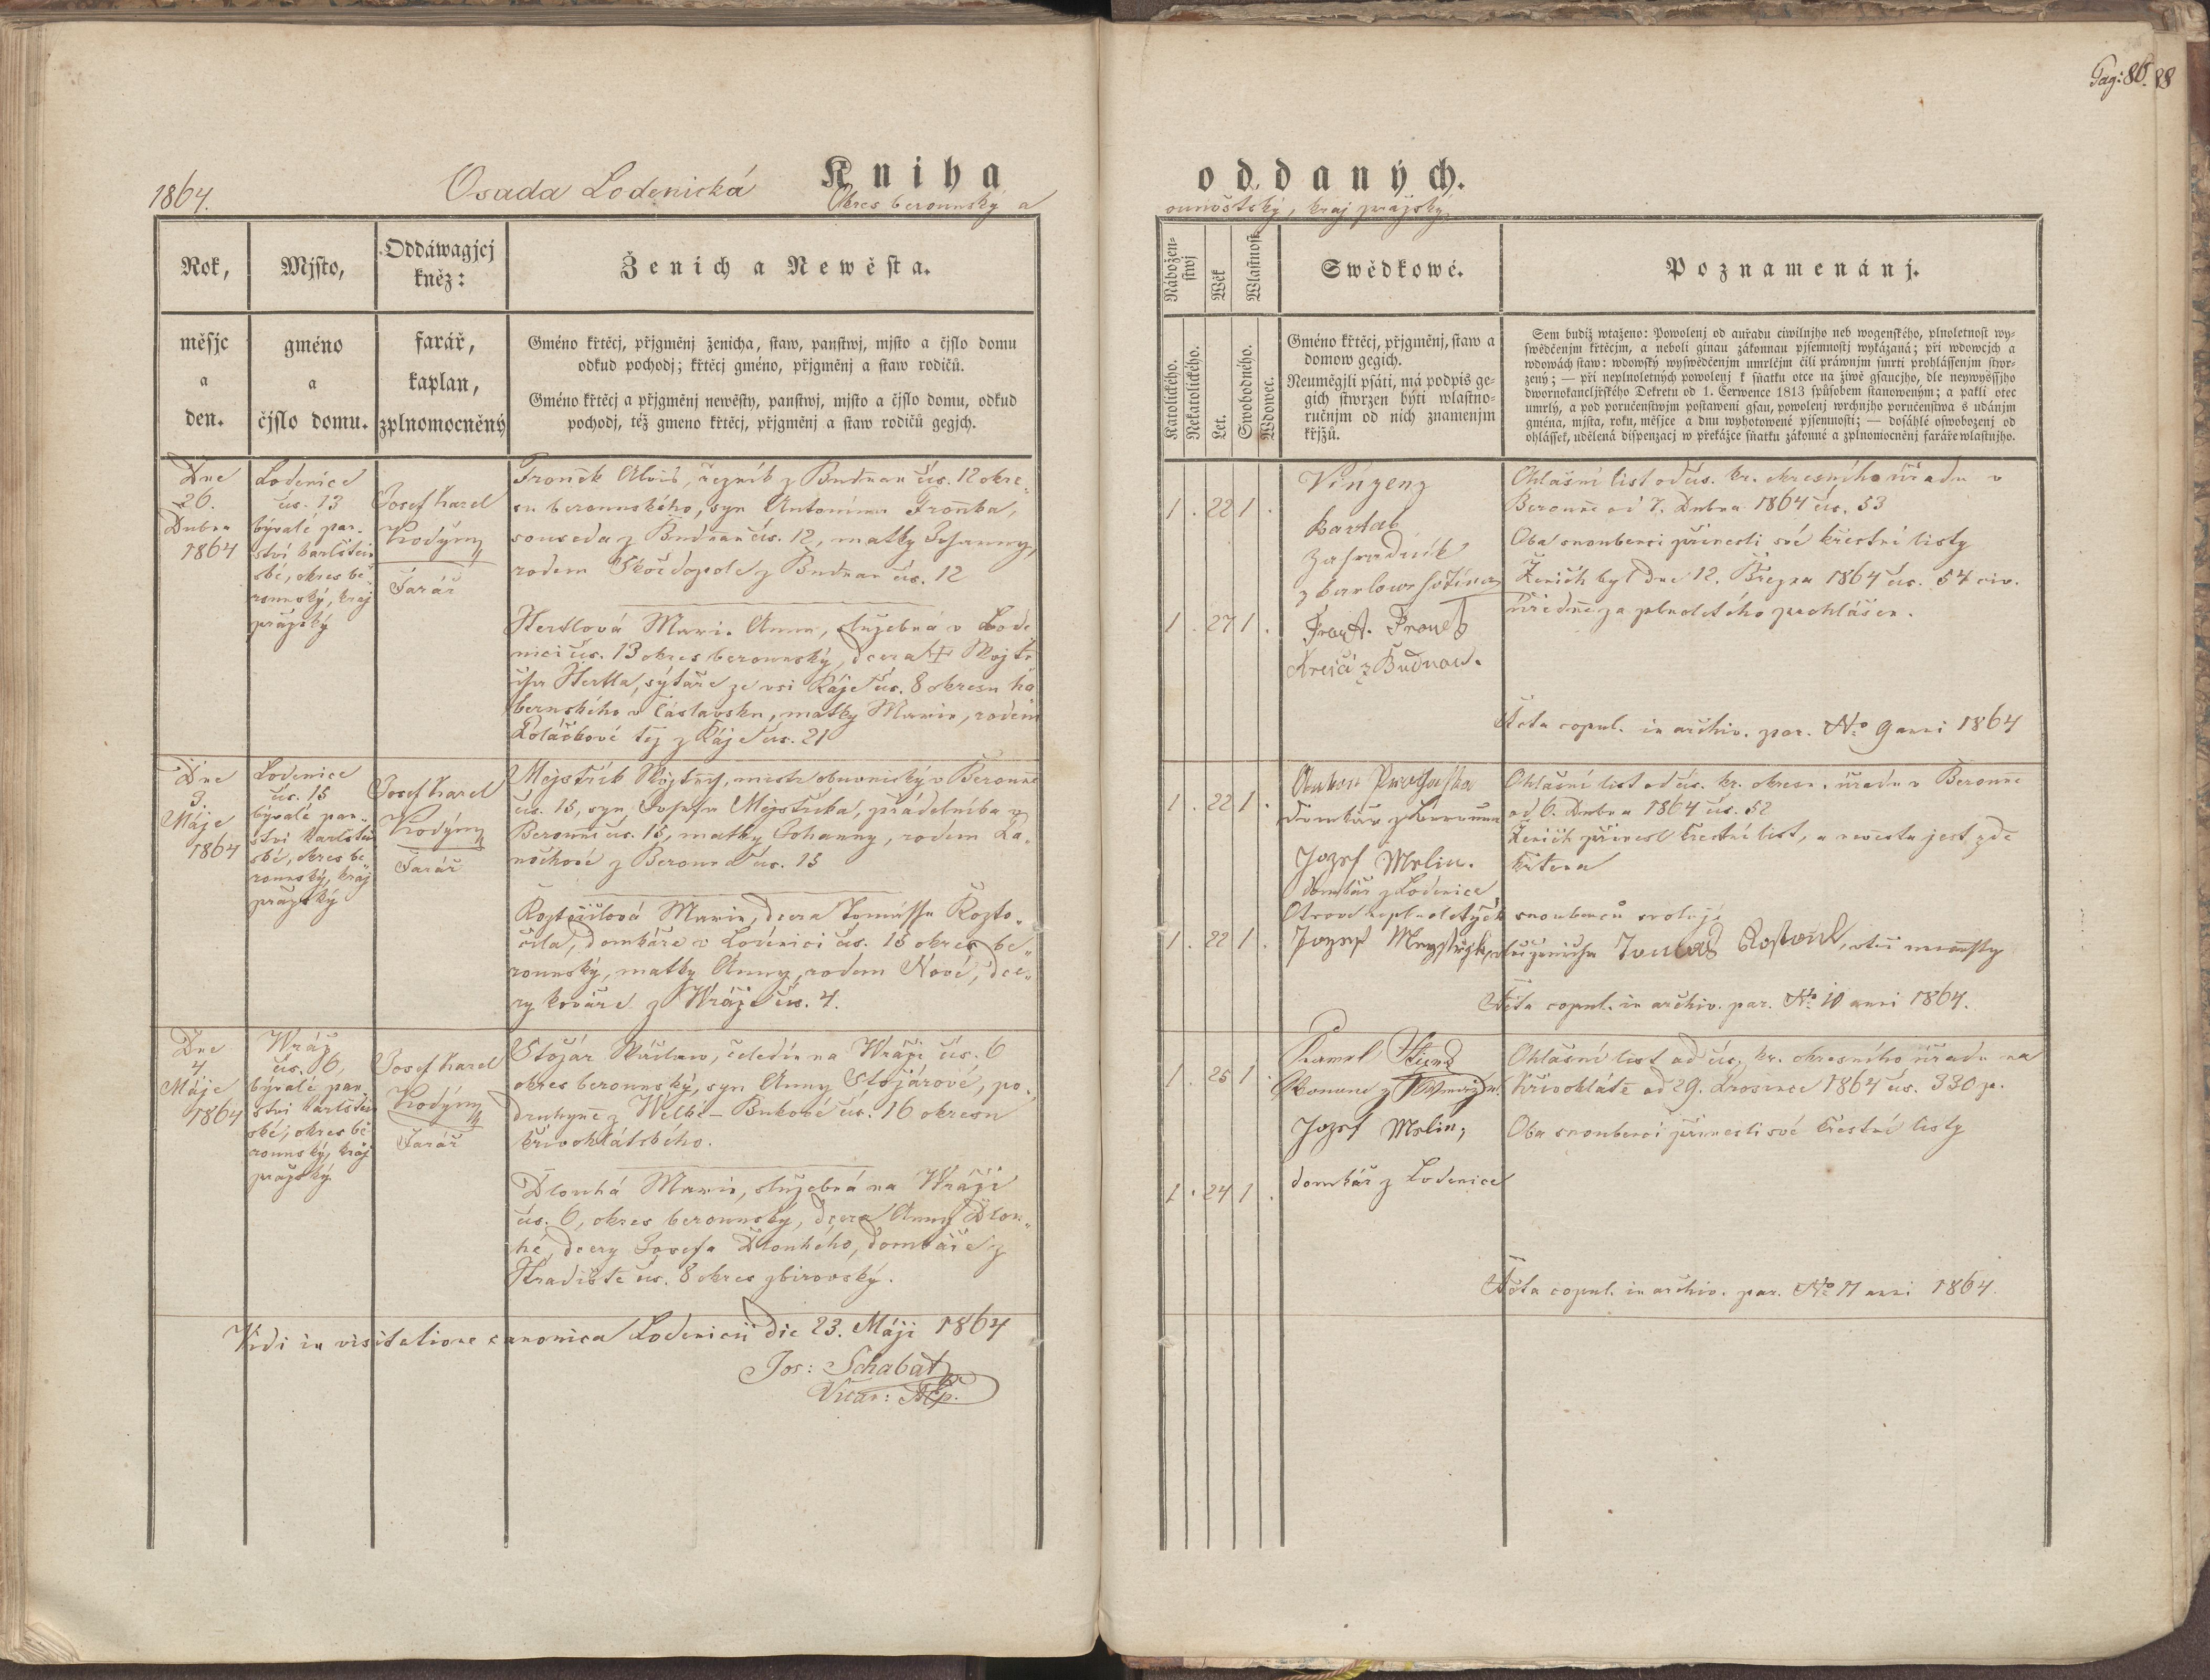 Pag: 86. 88
1864.
Osada Lodenická
Kniha
Okres berounský a
oddaných.
kraj pražský
Rok,
Mjsto,
Oddáwagjcj
kněz:
Ženich a Newěsta.
měsjc
a
den.
gméno
a
čjslo domu.
farář,
kaplan,
zplnomocněný
Gméno křtěcj, přjgměnj ženicha, staw, panstwj, mjsto a čjslo domu
odkud pochodj; křtěcj gméno, přjgměnj a staw rodičů.
Gméno křtěcj a přjgměnj newěsty, panstwj, mjsto a čjslo domu, odkud
pochodj, též gmeno křtěcj, přjgměnj a staw rodičů gegjch.
Dne
26.
Dubna
1864
Lodenice
čís. 13
bývalé pan-
ství karlštein
ské, okres be
rounský, kraj
pražský
Josef Karel
Kodýmy
Farář
Froněk Alois, řezník z Budňan čís. 12 okre-
su berounského, syn Antonína Froňka,
souseda z Budňan čís. 12, matky Johanny,
rodem z Budňan čís. 12
Hertlová Marie Anna, služebná v Lode
nici čís. 13 okres berounský, dcera † Wojtě
cha Hertla, sýtaře ze vsi Ráje čís. 8 okresu ha
bernského v Čáslavsku, matky Marie, rodem
Poláčkové též z Ráje čís. 21
Dne
3
Máje
1864
Lodenice
čís. 15
bývalé pan-
ství karlštein
ské, okres be-
rounský, kraj
pražský
Josef Karel
Kodýmy
Farář
Mejstřík Wojtěch, mistr obuvnický v Berouně
čís. 15, syn Josefa Mejstříka, přádelníka z
Berouna čís. 15, matky Johanny, rodem La-
z Berouna čís. 15
Roztočilová Marie, dcera Tomáše Rozto-
čila, domkáře v Lodenici čís. 15 okres be-
rounský, matky Anny, rodem Nové, dce-
ry kováře z Wráže čís. 4.
Dne
4
Máje
1864
Wráž
čís. 6,
bývalé pan-
ství karlštein
ské, okres be
rounský, kraj
pražský
Josef Karel
Kodýmy
Farář
Stožár Wáclaw, čeledín na Wráži čís. 6
okres berounský, syn Anny Stožárové, po-
druhyně z Welké-Bukové čís. 16 okresu
křivoklátského.
Dlouhá Marie, služebná na Wráži
čís. 6, okres berounský, dcera Anny Dlou-
hé, dcery Josefa Dlouhého, domkáře z
Hradiště čís. 8 okres zbirovský.
Vidi in visitatione canonica Lodenicii die 23. Máji 1864
Jos: Schabat
Vicar:
Nábožen-
stwj
Wěk
Wlastnost
Swědkowé.
Poznamenánj.
Katolického.
Nekatolického.
Let.
Swobodného.
Wdowec.
Gméno křtěcj, přjgměnj, staw a
domow gegich.
Neumegjli psáti, má podpis ge-
gich stwrzen býti wlastno-
ručnjm od nich znamenjm
křjžů.
Sem budiž wtaženo: Powolenj od auřadu ciwilnjho neb wogenského, plnoletnost wy-
swědčenjm křtěcjm, a neboli ginau zákonnau pjsemnostj wykázaná; při wdowcjch a
wdowách staw: wdowský wyswědčenjm umrlčjm čili práwnjm smrti prohlássenjm stwr-
zený; — při neplnoletných powolenj k sňatku otce na žiwě gsaucjho, dle neywyššjho
dwornokancljřského Dekretu od 1. Čerwence 1813 spůsobem stanoweným; a pakli otec
umrlý, a pod poručenstwjm postaweni gsau, powolenj wrchnjho poručenstwa s udánjm
gména, mjsta, roku, měsjce a dnu wyhotowené pjsemnosti; — dosáhlé oswobozenj od
ohlášek, udělená dispenzacj w překážce sňatku zákonné a zplnomocněnj faráře wlastnjho.
1 . 22 1 .
Vinzenz
Bartak
Zahradník
1 . 27 1 .
Frant. Froněk
Krejčí z Budňan.
Ohlašní list od čís. kr. okresního úřadu v
Berouně od 7. Dubna 1864 čís. 53
Oba snoubenci přinesli své křestní listy
Ženich byl dne 12. Března 1864 čís. 54 civ.
úředně za plnoletého prohlášen.
Acta copul. in archiv. par. No 9 anni 1864
1 . 22 1 .
Domkář z Berouna
Jozef Melin.
domkář z Lodenice
1 . 22 1 .
Ohlašní list od čís. kr. okresn. úřadu v Berouně
od 6. Dubna 1864 čís. 52
Ženich přinesl křestní list, a nevěsta jest zde
křtena
Otcové neplnoletých snoubenců svolují
Jozef Meystřyk, otec ženicha Tomáš Rostočil, otec nevěsty
Acta copul. in archiv. par. No 10 anni 1864.
1 . 25 1 .
Karel
Jozef Melin,
1 . 24 1 .
domkář z Lodenice
Ohlašní list od čís. kr. okresního úřadu na
Křivoklátě od 29. Prosince 1864 čís. 330 p.
Oba snoubenci přinesli své křestní listy
Acta copul. in archiv. par. No 11 anni 1864.